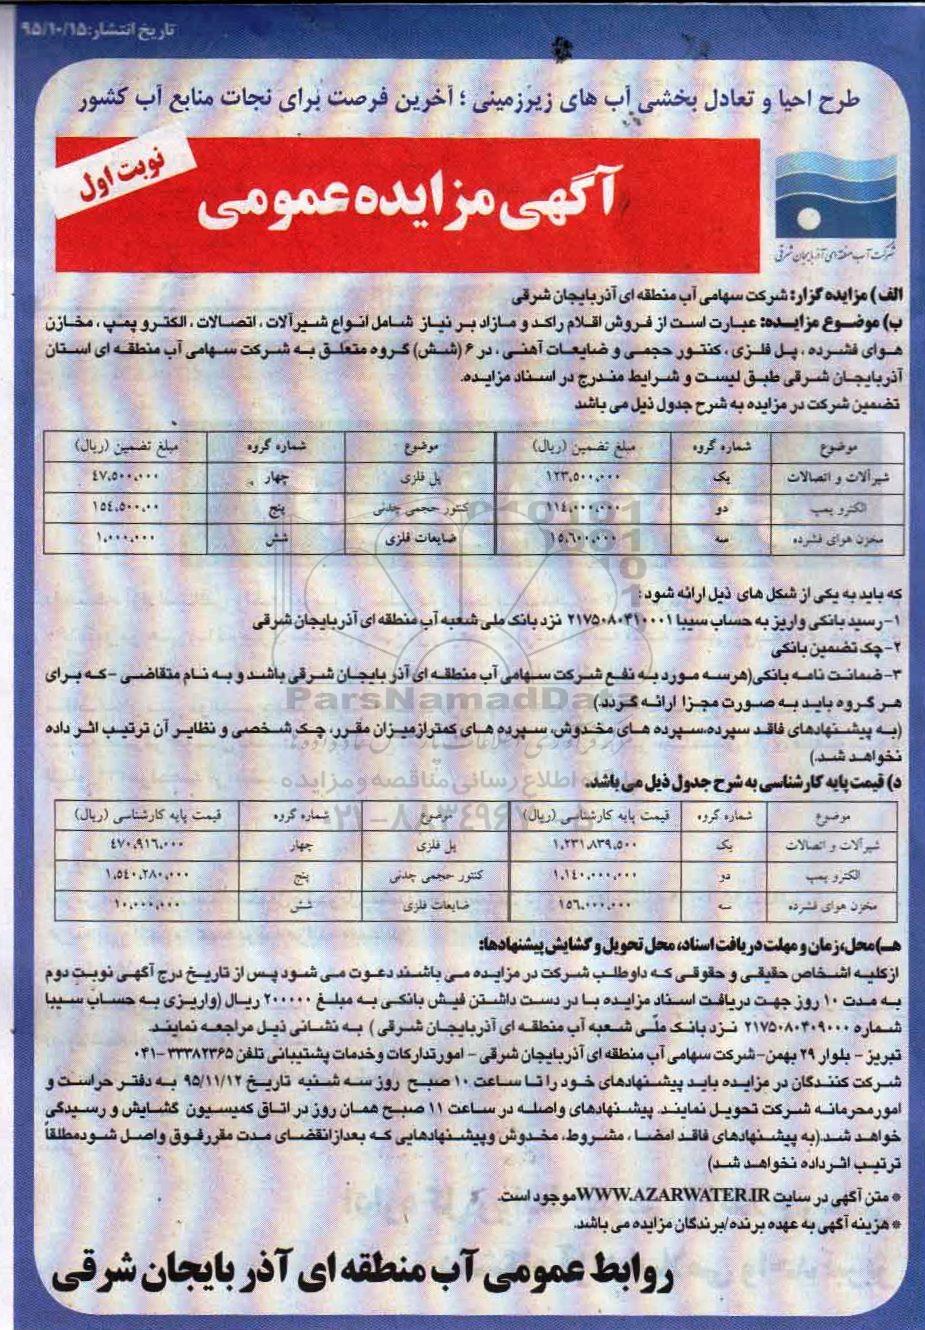 تاریخ انتشار:۹۵/۱۰/۱۵
طرح احیا و تعادل بخشی آب های زیرزمینی ؛ آخرین فرصت برای نجات منابع آب کشور
نوبت اول
آگهی مزایده عمومی
شرکت آب منطقه ای آذربایجان شرقی
الف) مزایده گزار: شرکت سهامی آب منطقه ای آذربایجان شرقی
ب) موضوع مزایده: عبارت است از فروش اقلام راکد و مازاد بر نیاز شامل انواع شیرآلات ، اتصالات ، الکترو پمپ ، مخازن
هوای فشرده ، پل فلزی ، کنتور حجمی و ضایعات آهنی ، در ۶ (شش) گروه متعلق به شرکت سهامی آب منطقه ای استان
آذربایجان شرقی طبق لیست و شرایط مندرج در اسناد مزایده.
تضمین شرکت در مزایده به شرح جدول ذیل می باشد
موضوع شماره گروه مبلغ تضمین (ریال) موضوع شماره گروه مبلغ تضمین (ریال)
شیرآلات و اتصالات یک ۱۲۳،۵۰۰،۰۰۰ پل فلزی چهار ۴۷،۵۰۰،۰۰۰
الکترو پمپ دو ۱۱۴،۰۰۰،۰۰۰ کنتور حجمی چدنی پنج ۱۵۴،۵۰۰،۰۰
مخزن هوای فشرده سه ۱۵،۶۰۰،۰۰۰ ضایعات فلزی شش ۱،۰۰۰،۰۰۰
که باید به یکی از شکل های ذیل ارائه شود :
۱-رسید بانکی واریز به حساب سیبا ۲۱۷۵۰۸۰۴۱۰۰۰۱ نزد بانک ملی شعبه آب منطقه ای آذربایجان شرقی
۲-چک تضمین بانکی
۳-ضمانت نامه بانکی(هرسه مورد به نفع شرکت سهامی آب منطقه ای آذربایجان شرقی باشد و به نام متقاضی -که برای
هر گروه باید به صورت مجزا ارائه گردد.)
ParsNamadData
(به پیشنهادهای فاقد سپرده،سپرده های مخدوش، سپرده های کمترازمیزان مقرر، چک شخصی و نظایر آن ترتیب اثر داده
نخواهد شد.)
د) قیمت پایه کارشناسی به شرح جدول ذیل می باشد.
اطلاع رسانی مناقصه و مزایده
موضوع شماره گروه قیمت پایه کارشناسی (ریال) موضوع شماره گروه قیمت پایه کارشناسی (ریال)
شیرآلات و اتصالات یک ۱،۲۳۱،۸۳۹،۵۰۰ پل فلزی چهار ۴۷۰،۹۱۶،۰۰۰
الکترو پمپ دو ۱،۱۴۰،۰۰۰،۰۰۰ کنتور حجمی چدنی پنج ۱،۵۴۰،۲۸۰،۰۰۰
مخزن هوای فشرده سه ۱۵۶،۰۰۰،۰۰۰ ضایعات فلزی شش ۱۰،۰۰۰،۰۰۰
هـ)محل،زمان و مهلت دریافت اسناد، محل تحویل و گشایش پیشنهادها:
ازکلیه اشخاص حقیقی و حقوقی که داوطلب شرکت در مزایده می باشند دعوت می شود پس از تاریخ درج آگهی نوبت دوم
به مدت ۱۰ روز جهت دریافت اسناد مزایده با در دست داشتن فیش بانکی به مبلغ ۲۰۰۰۰۰ ریال (واریزی به حساب سیبا
شماره ۲۱۷۵۰۸۰۴۰۹۰۰۰ نزد بانک ملّی شعبه آب منطقه ای آذربایجان شرقی ) به نشانی ذیل مراجعه نمایند.
تبریز – بلوار ۲۹ بهمن–شرکت سهامی آب منطقه ای آذربایجان شرقی – امورتدارکات وخدمات پشتیبانی تلفن ۳۳۳۸۲۳۶۵-۰۴۱
شرکت کنندگان در مزایده باید پیشنهادهای خود را تا ساعت ۱۰ صبح روز سه شنبه تاریخ ۹۵/۱۱/۱۲ به دفتر حراست و
امورمحرمانه شرکت تحویل نمایند. پیشنهادهای واصله در ساعت ۱۱ صبح همان روز در اتاق کمیسیون گشایش و رسیدگی
خواهد شد.(به پیشنهادهای فاقد امضا ، مشروط، مخدوش وپیشنهادهایی که بعدازانقضای مدت مقررفوق واصل شودمطلقاً
ترتیب اثرداده نخواهد شد)
* متن آگهی در سایت WWW.AZARWATER.IR موجود است.
* هزینه آگهی به عهده برنده/برندگان مزایده می باشد.
روابط عمومی آب منطقه ای آذربایجان شرقی